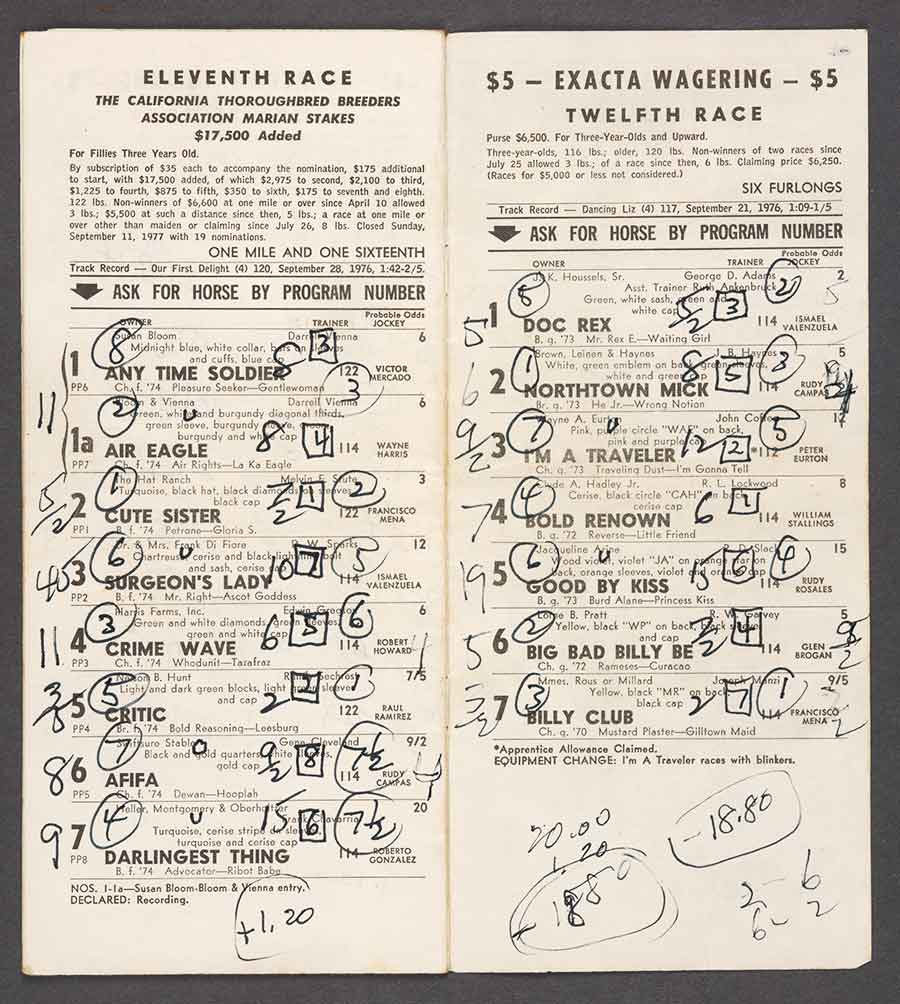 ELEVENTH RACE
THE CALIFORNIA THOROUGHBRED BREEDERS
ASSOCIATION MARIAN STAKES
$17,500 Added
For Fillies Three Years Old.
By subscription of $35 each to accompany the nomination, $175 additional
to start, with $17,500 added, of which $2,975 to second, $2,100 to third,
$1,225 to fourth, $875 to fifth, $350 to sixth, $175 to seventh and eighth.
122 lbs. Non-winners of $6,600 at one mile or over since April 10 allowed
3 lbs.; $5,500 at such a distance since then, 5 lbs.; a race at one mile or
over other than maiden or claiming since July 26, 8 lbs. Closed Sunday,
September 11, 1977 with 19 nominations.
ONE MILE AND ONE SIXTEENTH
Track Record — Our First Delight (4) 120, September 28, 1976, 1:42-2/5.
ASK FOR HORSE BY PROGRAM NUMBER
Probable Odds
OWNER TRAINER JOCKEY
8 Susan Bloom 3 6
Midnight blue, white collar, bars on sleeves
and cuffs, blue cap
1 ANY TIME SOLDIER 8 122 VICTOR MERCADO
PP6 Ch. f. '74 Pleasure Seeker—Gentlewoman 3
11
2 Bloom & Vienna Darrell Vienna 6
Green, white and burgundy diagonal thirds,
green sleeve, burgundy sleeve,
burgundy and white cap
1a AIR EAGLE 8 4 114 WAYNE HARRIS
PP7 Ch. f. '74 Air Rights—La Ka Eagle
1 The Hat Ranch Melvin F. Stute 3
Turquoise, black hat, black diamonds on sleeves,
black cap
5/2 2 CUTE SISTER 7/2 1 2 122 FRANCISCO MENA
PP1 B. f. '74 Petrone—Gloria S.
6 Dr. & Mrs. Frank Di Fiore W. Sparks 12
Chartreuse, cerise and black lightning bolt
and sash, cerise
45 3 SURGEON'S LADY 10 7 5 114 ISMAEL VALENZUELA
PP2 B. f. '74 Mr. Right—Ascot Goddess
3 Harris Farms, Inc. Edwin Gregson 6
Green and white diamonds, green sleeves,
green and white cap
11 4 CRIME WAVE 6 5 6 114 ROBERT HOWARD
PP3 Ch. f. '74 Whodunit—Tarafraz
5 Nelson B. Hunt 7/5
Light and dark green blocks, light sleeves
and cap
5 CRITIC 2 2 1 122 RAUL RAMIREZ
PP4 Br. f. '74 Bold Reasoning—Leesburg
7 Gene Cleveland 9/2
Black and gold quarters, white sleeves,
gold cap
8 6 AFIFA 9/2 8 7½ 114 RUDY CAMPAS 4
PP5 Ch. f. '74 Dewan—Hooplah
4 Heller, Montgomery & Oberholtzer Frank Chavarria 20
Turquoise, cerise stripe on sleeves,
turquoise and cerise cap
9 7 DARLINGEST THING 15 6 7½ 114 ROBERTO GONZALEZ
PP8 B. f. '74 Advocator—Ribot Babe
NOS. 1-1a—Susan Bloom-Bloom & Vienna entry.
DECLARED: Recording.
+1.20
$5 — EXACTA WAGERING — $5
TWELFTH RACE
Purse $6,500. For Three-Year-Olds and Upward.
Three-year-olds, 116 lbs.; older, 120 lbs. Non-winners of two races since
July 25 allowed 3 lbs.; of a race since then, 6 lbs. Claiming price $6,250.
(Races for $5,000 or less not considered.)
SIX FURLONGS
Track Record — Dancing Liz (4) 117, September 21, 1976, 1:09-1/5
ASK FOR HORSE BY PROGRAM NUMBER
Probable Odds
OWNER TRAINER JOCKEY
5 J.K. Houssels, Sr. George D. Adams 2 2
Asst. Trainer Ruth Ankenbruck 5
Green, white sash, green and
white cap
5 1 DOC REX 5/2 3 114 ISMAEL VALENZUELA
B. g. '73 Mr. Rex E.—Waiting Girl
1 Brown, Leinen & Haynes J. B. Haynes 3 5
White, green emblem on back, green sleeves,
white and green cap
6 2 NORTHTOWN MICK 8 5 114 RUDY CAMPAS
Br. g. '73 He Jr.—Wrong Notion
7 Wayne A. Eurton John Coffee 5 12
Pink, purple circle "WAE" on back,
pink and purple cap
9/2 3 I'M A TRAVELER 12 2 *112 PETER EURTON
Ch. g. '73 Traveling Dust—I'm Gonna Tell
4 Clyde A. Hadley Jr. R. L. Lockwood 8
Cerise, black circle "CAH" on back,
cerise cap
7 4 BOLD RENOWN 6 1 114 WILLIAM STALLINGS
B. g. '72 Reverse—Little Friend
6 Jacqueline Avine R. D. Slack 4 15
violet, violet "JA" on orange
back, orange sleeves, violet and orange cap
19 5 GOOD BY KISS 15 6 114 RUDY ROSALES
B. g. '73 Burd Alane—Princess Kiss
2 Lorne B. Pratt R. W. Garvey 5
Yellow, black "WP" on back, black sleeves
and cap
5 6 BIG BAD BILLY BE 7/2 4 114 GLEN BROGAN
Ch. g. '72 Rameses—Curacao
3 Mmes. Rous or Millard Joseph Manzi 1 9/5
Yellow, black "MR" on back,
black cap
3/2 7 BILLY CLUB 2 7 114 FRANCISCO MENA
Ch. g. '70 Mustard Plaster—Gilltown Maid
*Apprentice Allowance Claimed.
EQUIPMENT CHANGE: I'm A Traveler races with blinkers.
20.00
1.20
18.80
-18.80
2-6
6-2